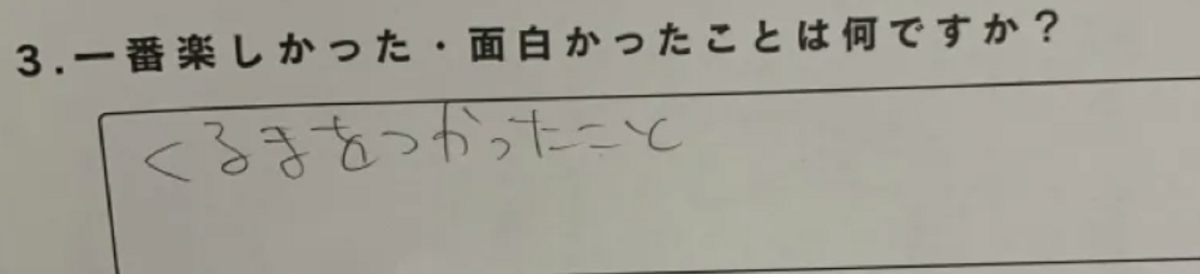 3.一番楽しかった・面白かったことは何ですか？
くるまをつかったこと